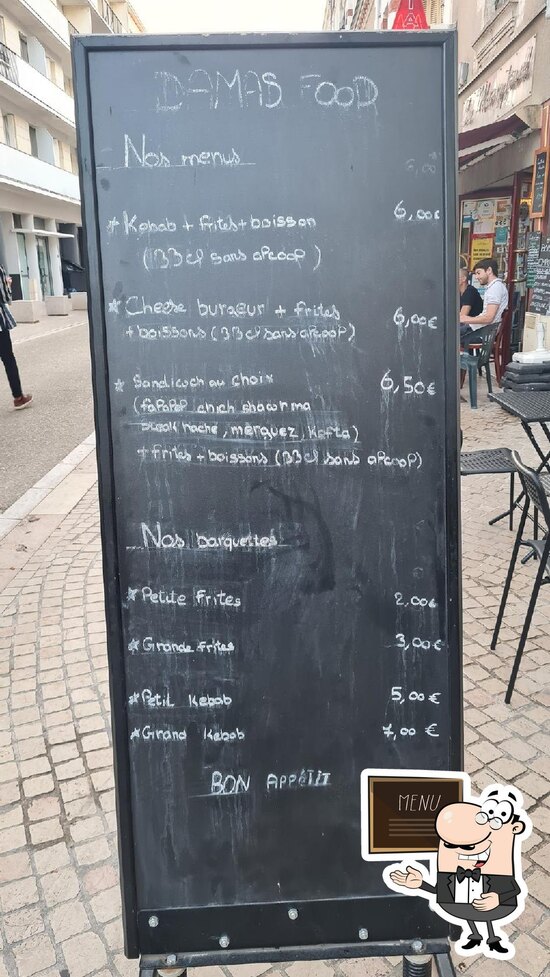 DAMAS FOOD
Nos menus
* Kebab + frites + boisson 6,00€
(33 cl sans alcool)
* Cheese burgeur + frites 6,00€
+ boissons (33 cl sans alcool)
* Sandicuch au choix 6,50€
chich shawrma
steak haché, merguez, Kefta)
+ frites + boissons (33 cl sans alcool)
Nos barquettes
* Petite Frites 2,00€
* Grande frites 3,00€
* Petit Kebab 5,00€
* Grand Kebab 7,00 €
BON APPÉTIT
MENU